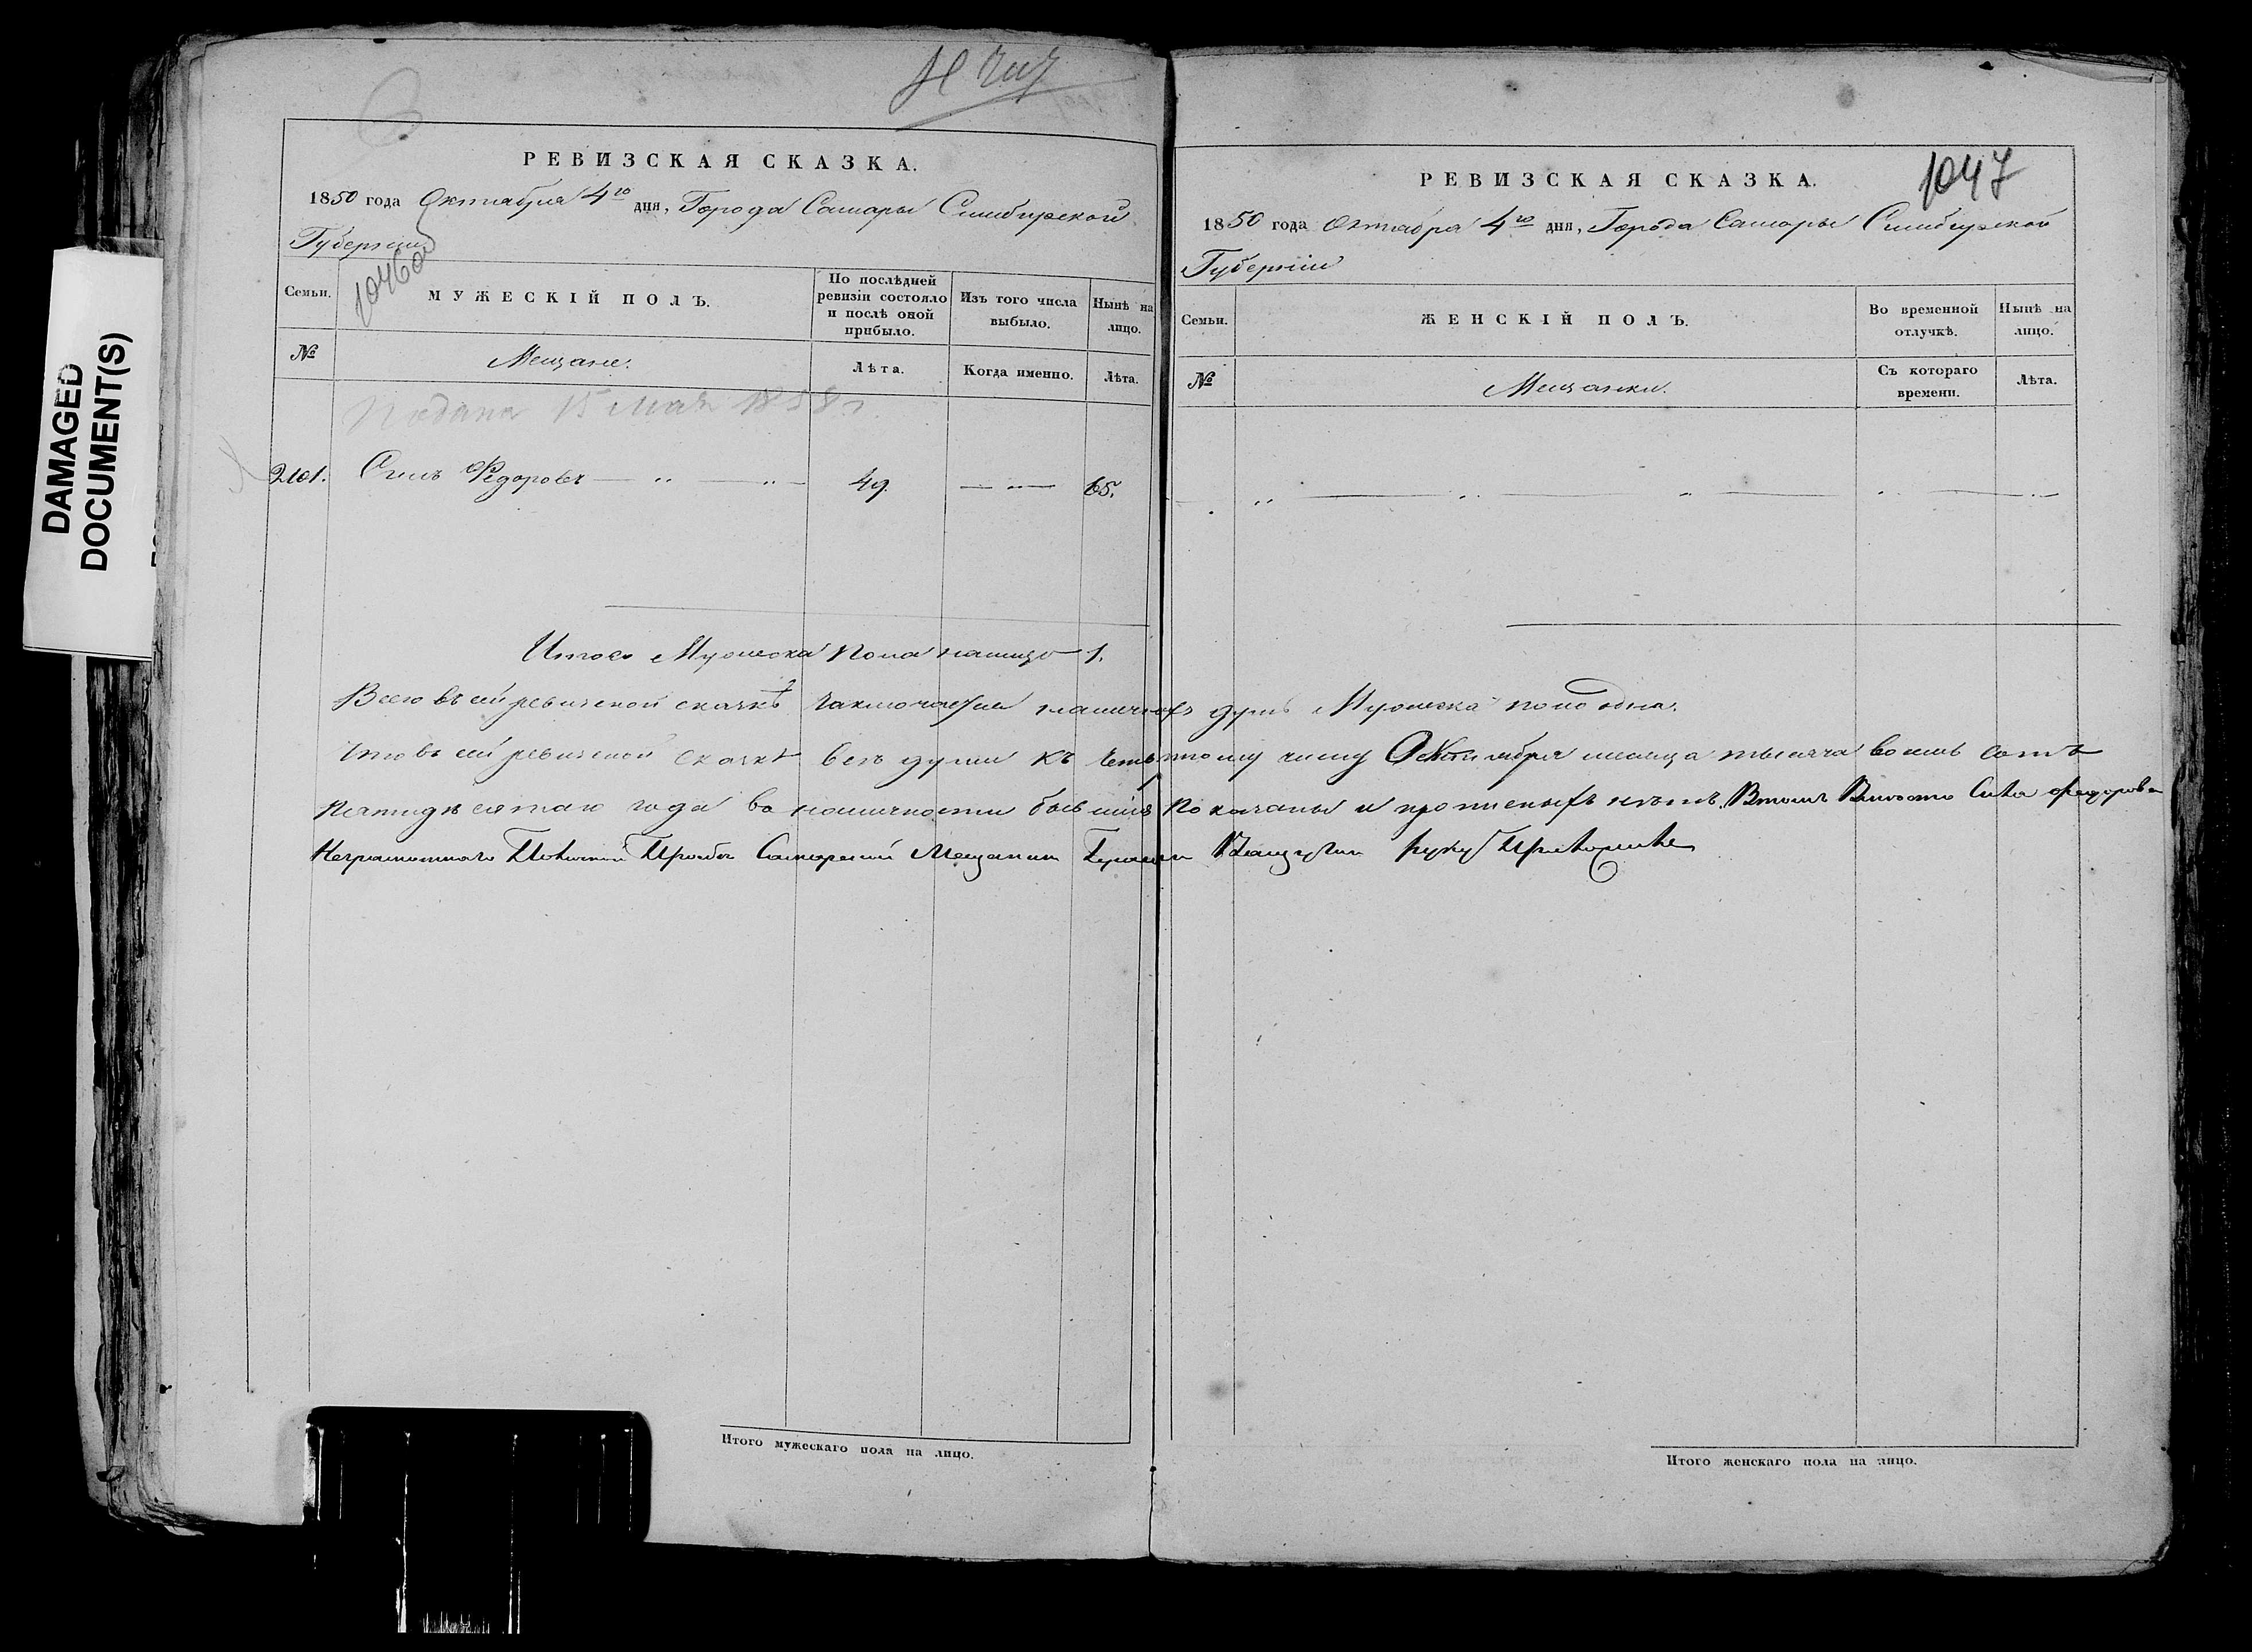 1047
РЕВИЗСКАЯ СКАЗКА.
1850 года Октября 4го дня, Города Самары Симбирской
Губернии
1046об
Семьи.
МУЖЕСКІЙ ПОЛЪ.
По послѣдней ревизіи состояло и послѣ оной прибыло.
Изъ того числа выбыло.
Нынѣ на лицо.
№
Мещане.
Лѣта.
Когда именно.
Лѣта.
Подана 15 Мая 1858 г.
2101. Федоровъ 49. 65.
Итого Мужеска Пола налицо 1.
РЕВИЗСКАЯ СКАЗКА.
1850 года Октября 4го дня, Города Самары Симбирской
Губерніи
Семьи.
ЖЕНСКІЙ ПОЛЪ.
Во временной отлучкѣ.
Нынѣ на лицо.
№
Мещанки.
Съ котораго времени.
Лѣта.
Всего въ сей ревизской сказкѣ заключается наличныхъ душъ Мужеска пола одна.
Что въ сей ревизской сказкѣ всѣ души къ четвертому числу Октября месяца тысяча восемь сотъ
пятидѣсятаго года въ наличности бывшія показаны и прописныхъ нѣтъ. Въ томъ Вместо Федорова
Неграмотнаго Самарский Мещанин руку Приложилъ
Итого мужескаго пола на лицо.
Итого женскаго пола на лицо.
DAMAGED
DOCUMENT(S)